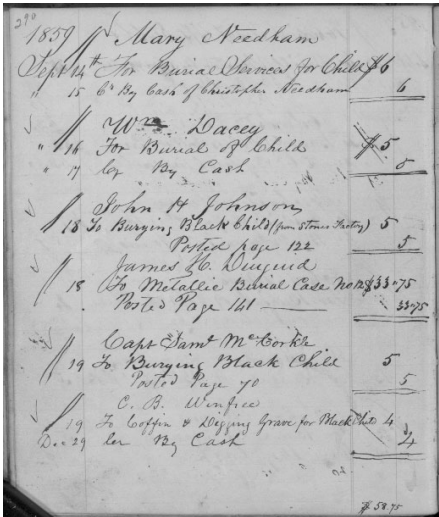 290
1859 Mary Needham
Sept 14th For Burial Services for Child $6
" 15 Cr By Cash of Christopher Needham 6
Wm Dacey
" 16 For Burial of Child $5
" 17 Cr By Cash 5
John H Johnson
18 To Burying Black Child (from Stones Factory) 5
Posted page 122 5
James H. Duiguid
18 To Metallic Burial Case No $33.75
Posted Page 141 33.75
Capt Saml McCorkle
19 To Burying Black Child 5
Posted Page 70 5
C. B. Winfree
19 To Coffin & Digging Grave for Black Child 4
Dec 29 Cr By Cash 4
$58.75